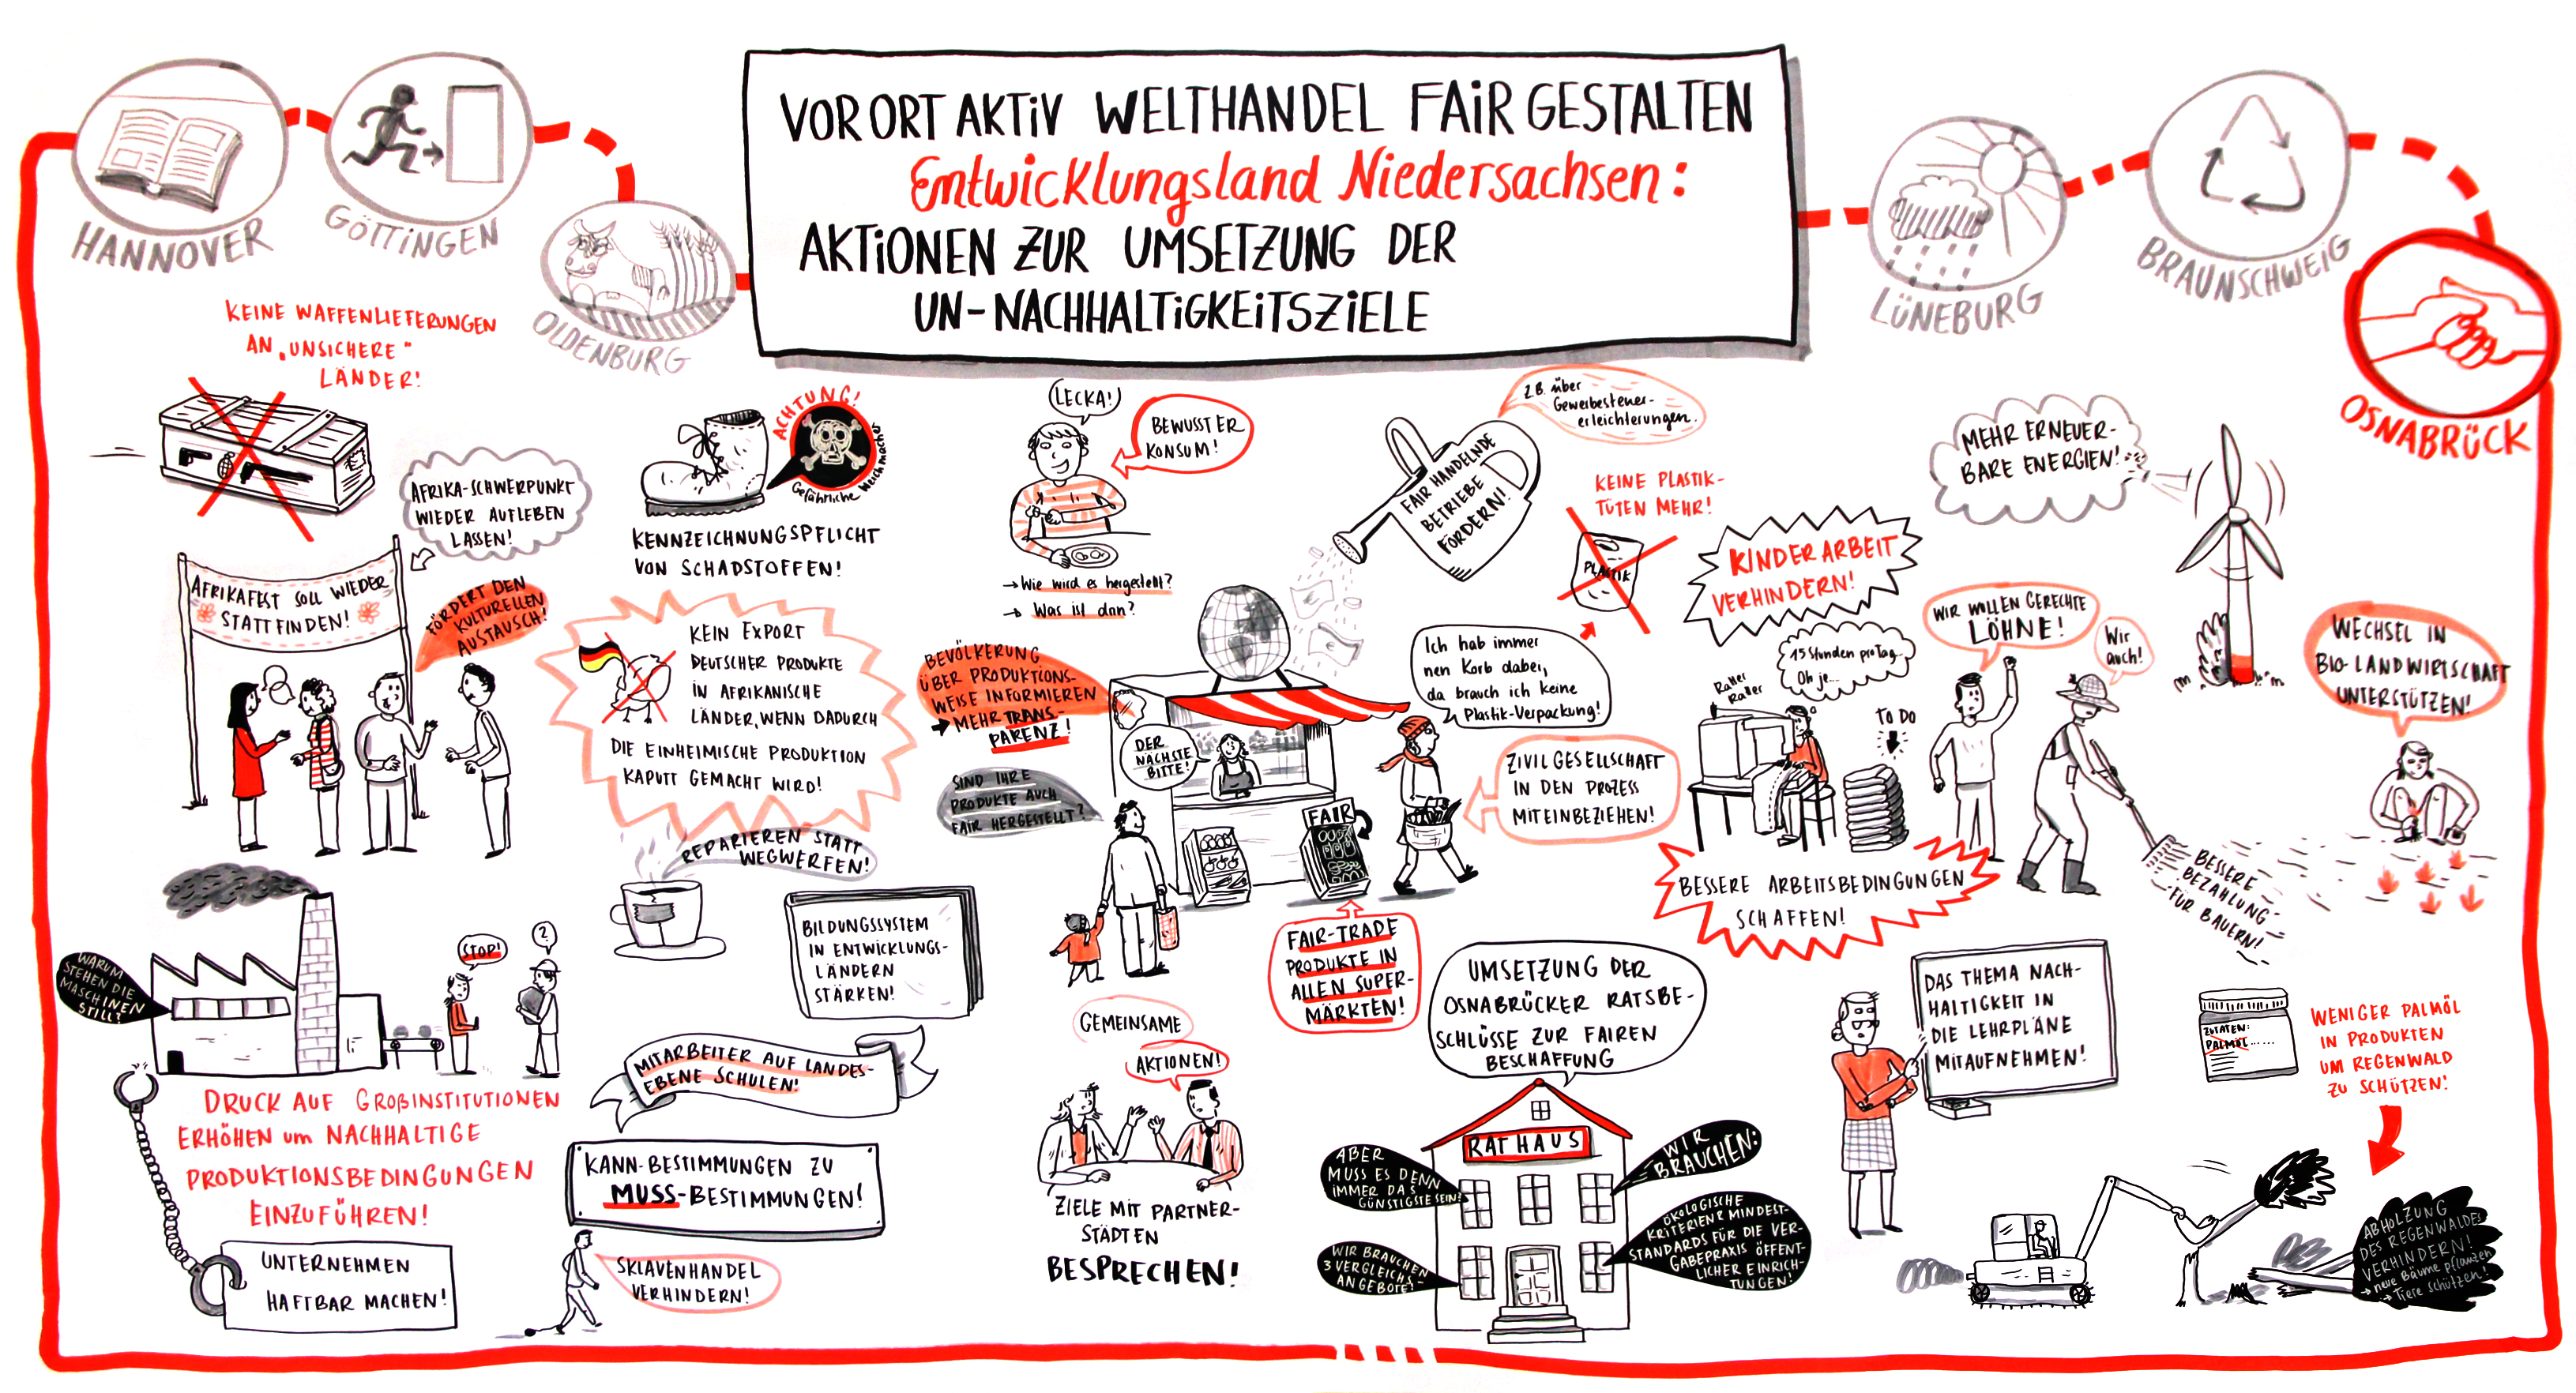 VOR ORT AKTIV WELTHANDEL FAIR GESTALTEN
Entwicklungsland Niedersachsen:
AKTIONEN ZUR UMSETZUNG DER
UN-NACHHALTIGKEITSZIELE
HANNOVER
GÖTTINGEN
OLDENBURG
LÜNEBURG
BRAUNSCHWEIG
OSNABRÜCK
KEINE WAFFENLIEFERUNGEN
AN „UNSICHERE“
LÄNDER!
AFRIKA-SCHWERPUNKT
WIEDER AUFLEBEN
LASSEN!
AFRIKAFEST SOLL WIEDER
STATTFINDEN!
FÖRDERT DEN
KULTURELLEN
AUSTAUSCH!
ACHTUNG!
Gefährliche Weichmacher
KENNZEICHNUNGSPFLICHT
VON SCHADSTOFFEN!
KEIN EXPORT
DEUTSCHER PRODUKTE
IN AFRIKANISCHE
LÄNDER, WENN DADURCH
DIE EINHEIMISCHE PRODUKTION
KAPUTT GEMACHT WIRD!
LECKA!
BEWUSSTER
KONSUM!
→ Wie wird es hergestellt?
→ Was ist dan?
z.B. über
Gewerbesteuer-
erleichterungen.
FAIR HANDELNDE
BETRIEBE
FÖRDERN!
KEINE PLASTIK-
TÜTEN MEHR!
PLASTIK
Ich hab immer
nen Korb dabei,
da brauch ich keine
Plastik-Verpackung!
BEVÖLKERUNG
ÜBER PRODUKTIONS-
WEISE INFORMIEREN
→ MEHR TRANS-
PARENZ!
DER
NÄCHSTE
BITTE!
SIND IHRE
PRODUKTE AUCH
FAIR HERGESTELLT?
FAIR
ZIVILGESELLSCHAFT
IN DEN PROZESS
MITEINBEZIEHEN!
FAIR-TRADE
PRODUKTE IN
ALLEN SUPER-
MÄRKTEN!
KINDERARBEIT
VERHINDERN!
15 Stunden pro Tag.
Oh je...
Ratter
Ratter
TO DO
BESSERE ARBEITSBEDINGUNGEN
SCHAFFEN!
MEHR ERNEUER-
BARE ENERGIEN!
WIR WOLLEN GERECHTE
LÖHNE!
Wir
auch!
WECHSEL IN
BIO-LANDWIRTSCHAFT
UNTERSTÜTZEN!
BESSERE
BEZAHLUNG
FÜR BAUERN!
WARUM
STEHEN DIE
MASCHINEN
STILL?
STOP!
?
DRUCK AUF GROßINSTITUTIONEN
ERHÖHEN um NACHHALTIGE
PRODUKTIONSBEDINGUNGEN
EINZUFÜHREN!
UNTERNEHMEN
HAFTBAR MACHEN!
REPARIEREN STATT
WEGWERFEN!
BILDUNGSSYSTEM
IN ENTWICKLUNGS-
LÄNDERN
STÄRKEN!
MITARBEITER AUF LANDES-
EBENE SCHULEN!
KANN-BESTIMMUNGEN ZU
MUSS-BESTIMMUNGEN!
SKLAVENHANDEL
VERHINDERN!
GEMEINSAME
AKTIONEN!
ZIELE MIT PARTNER-
STÄDTEN
BESPRECHEN!
UMSETZUNG DER
OSNABRÜCKER RATSBE-
SCHLÜSSE ZUR FAIREN
BESCHAFFUNG
RATHAUS
ABER
MUSS ES DENN
IMMER DAS
GÜNSTIGSTE SEIN?
WIR BRAUCHEN
3 VERGLEICHS-
ANGEBOTE!
WIR
BRAUCHEN:
ÖKOLOGISCHE
KRITERIEN & MINDEST-
STANDARDS FÜR DIE VER-
GABEPRAXIS ÖFFENT-
LICHER EINRICH-
TUNGEN!
DAS THEMA NACH-
HALTIGKEIT IN
DIE LEHRPLÄNE
MITAUFNEHMEN!
ZUTATEN:
PALMÖL......
WENIGER PALMÖL
IN PRODUKTEN
UM REGENWALD
ZU SCHÜTZEN!
ABHOLZUNG
DES REGENWALDES
VERHINDERN!
→ neue Bäume pflanzen
→ Tiere schützen!